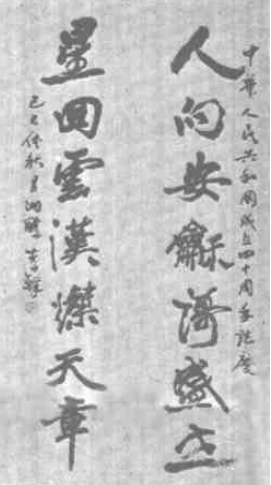 中華人民共和國成立四十周年誌慶
人向安龢謌盛世
星回雲漢燦天章
己巳仲秋月